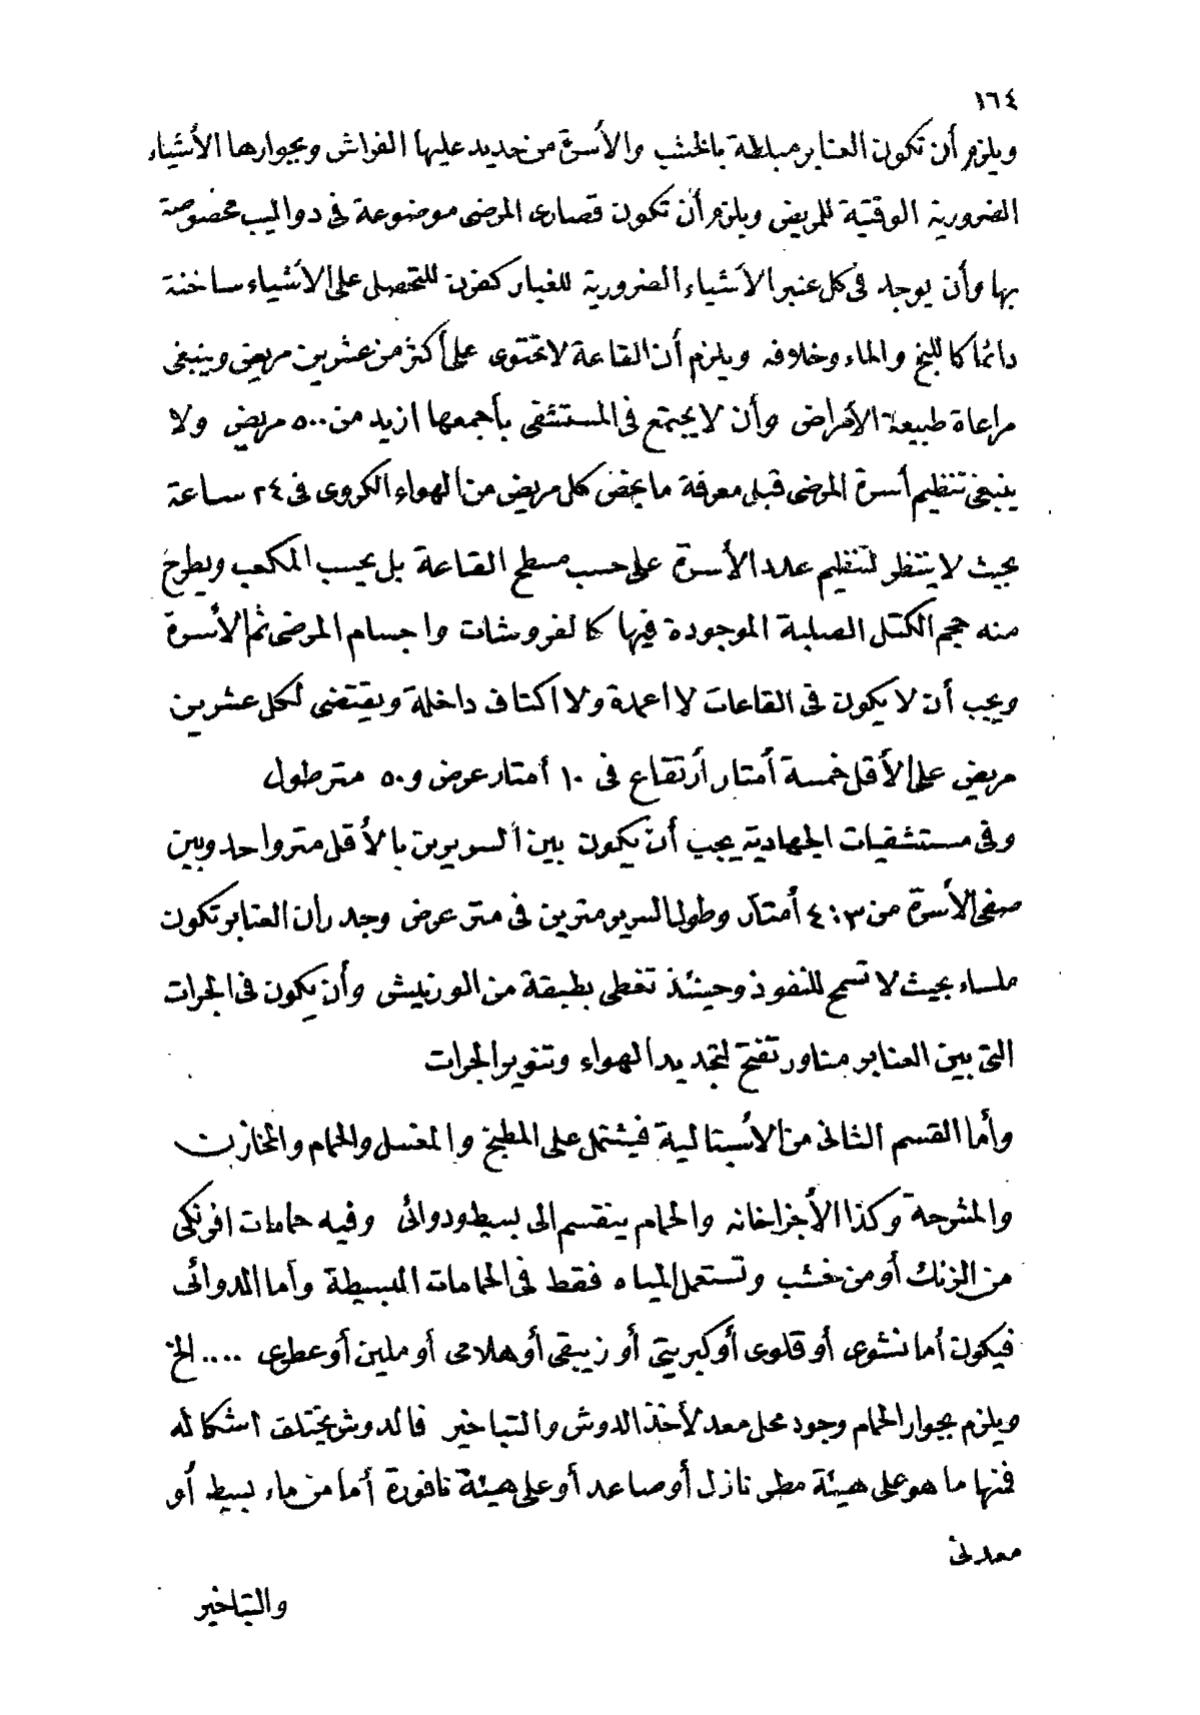 ١٦٤
ويلزم أن تكون العنابر مبلطة بالخشب والأسرة من حديد عليها الفراش وبجوارها الأشياء
الضرورية الوقتية للمريض ويلزم أن تكون قصارى المرضى موضوعة فى دواليب مخصوصة
بها وأن يوجد فى كل عنبر الأشياء الضرورية للغيار كفرن للتحصل على الأشياء ساخنة
دائما كاللبخ والماء وخلافه ويلزم أن القاعة لا تحتوى على أكثر من عشرين مريض وينبغى
مراعاة طبيعة الأمراض وأن لا يجتمع فى المستشفى بأجمعها ازيد من ٥٠٠ مريض ولا
ينبغى تنظيم أسرة المرضى قبل معرفة ما يخص كل مريض من الهواء الكروى فى ٢٤ ساعة
بحيث لا ينتظر لتنظيم عدد الأسرة على حسب مسطح القاعة بل بحسب المكعب ويطرح
منه حجم الكتل الصلبة الموجودة فيها كالفروشات واجسام المرضى ثم الأسرة
ويجب أن لا يكون فى القاعات لا اعمدة ولا اكتاف داخلة ويقتضى لكل عشرين
مريض على الأقل خمسة أمتار أرتفاع فى ١٠ أمتار عرض و ٥٠ متر طول
وفى مستشفيات الجهادية يجب أن يكون بين السريرين بالأقل متر واحد وبين
صفى الأسرة من ٣:٤ أمتار وطول السرير مترين فى متر عرض وجدران العنابر تكون
ملساء بحيث لا تسمح للنفوذ وحينئذ تغطى بطبقة من الورنيش وأن يكون فى الجرات
التى بين العنابر مناور تفتح لتجديد الهواء وتنوير الجرات
وأما القسم الثانى من الأسبتالية فيشتمل على المطبخ والمغسل والحمام والمخازن
والمشرحة وكذا الأجزاخانه والحمام ينقسم الى بسيط ودوائى وفيه حمامات افرنكى
من الزنك أو من خشب وتستعمل المياه فقط فى الحمامات البسيطة وأما الدوائى
فيكون أما نشوى أو قلوى أو كبريتى أو زيبقى أو هلامى أو ملين أو عطرى .... الخ
ويلزم بجوار الحمام وجود محل معد لأخذ الدوش والتباخير فالدوش يختلف اشكاله
فمنها ما هو على هيئة مطر نازل أو صاعد أو على هيئة نافورة أما من ماء بسيط أو
معدنى
والتباخير